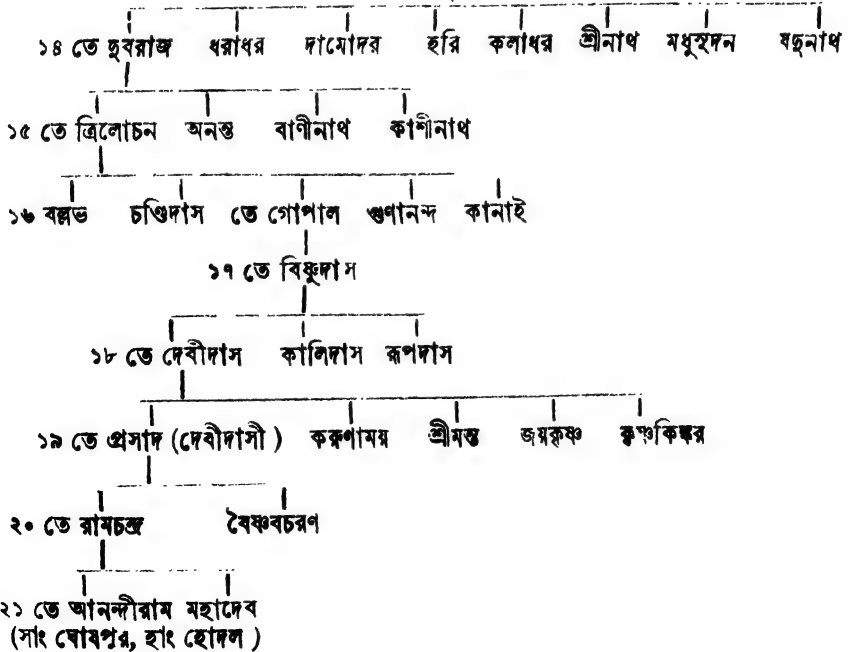 ১৪ তে দুবরাজ ধরাধর দামোদর হরি কলাধর শ্রীনাথ মধুসূদন যদুনাথ
১৫ তে ত্রিলোচন অনন্ত বাণীনাথ কাশীনাথ
১৬ বল্লভ চণ্ডিদাস তে গোপাল গুণানন্দ কানাই
১৭ তে বিষ্ণুদাস
১৮ তে দেবীদাস কালিদাস রূপদাস
১৯ তে প্রসাদ (দেবীদাসী) করুণাময় শ্রীমন্ত জয়কৃষ্ণ কৃষ্ণকিঙ্কর
২০ তে রামচন্দ্র বৈষ্ণবচরণ
২১ তে আনন্দীরাম মহাদেব
(সাং ঘোষপুর, হাং হোদল)